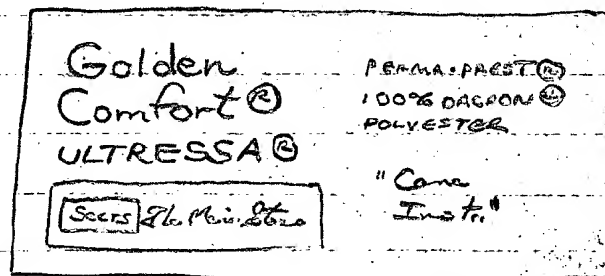 Golden
Comfort ®
ULTRESSA ®
Sears The Men's Store
PERMA-PREST ®
100% DACRON ®
POLYESTER
"Care
Instr."